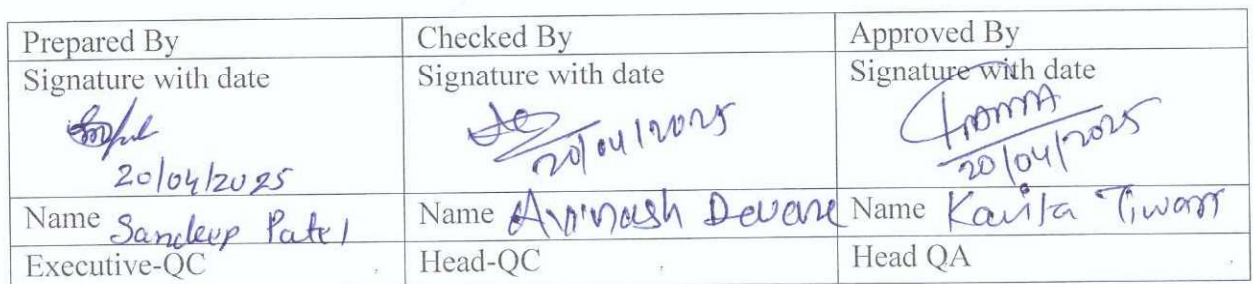 Prepared By Checked By Approved By
Signature with date Signature with date Signature with date
20/04/2025 20/04/2025 20/04/2025
Name Sandeep Patel Name Avinash Devare Name Kavita Tiwari
Executive-QC Head-QC Head QA